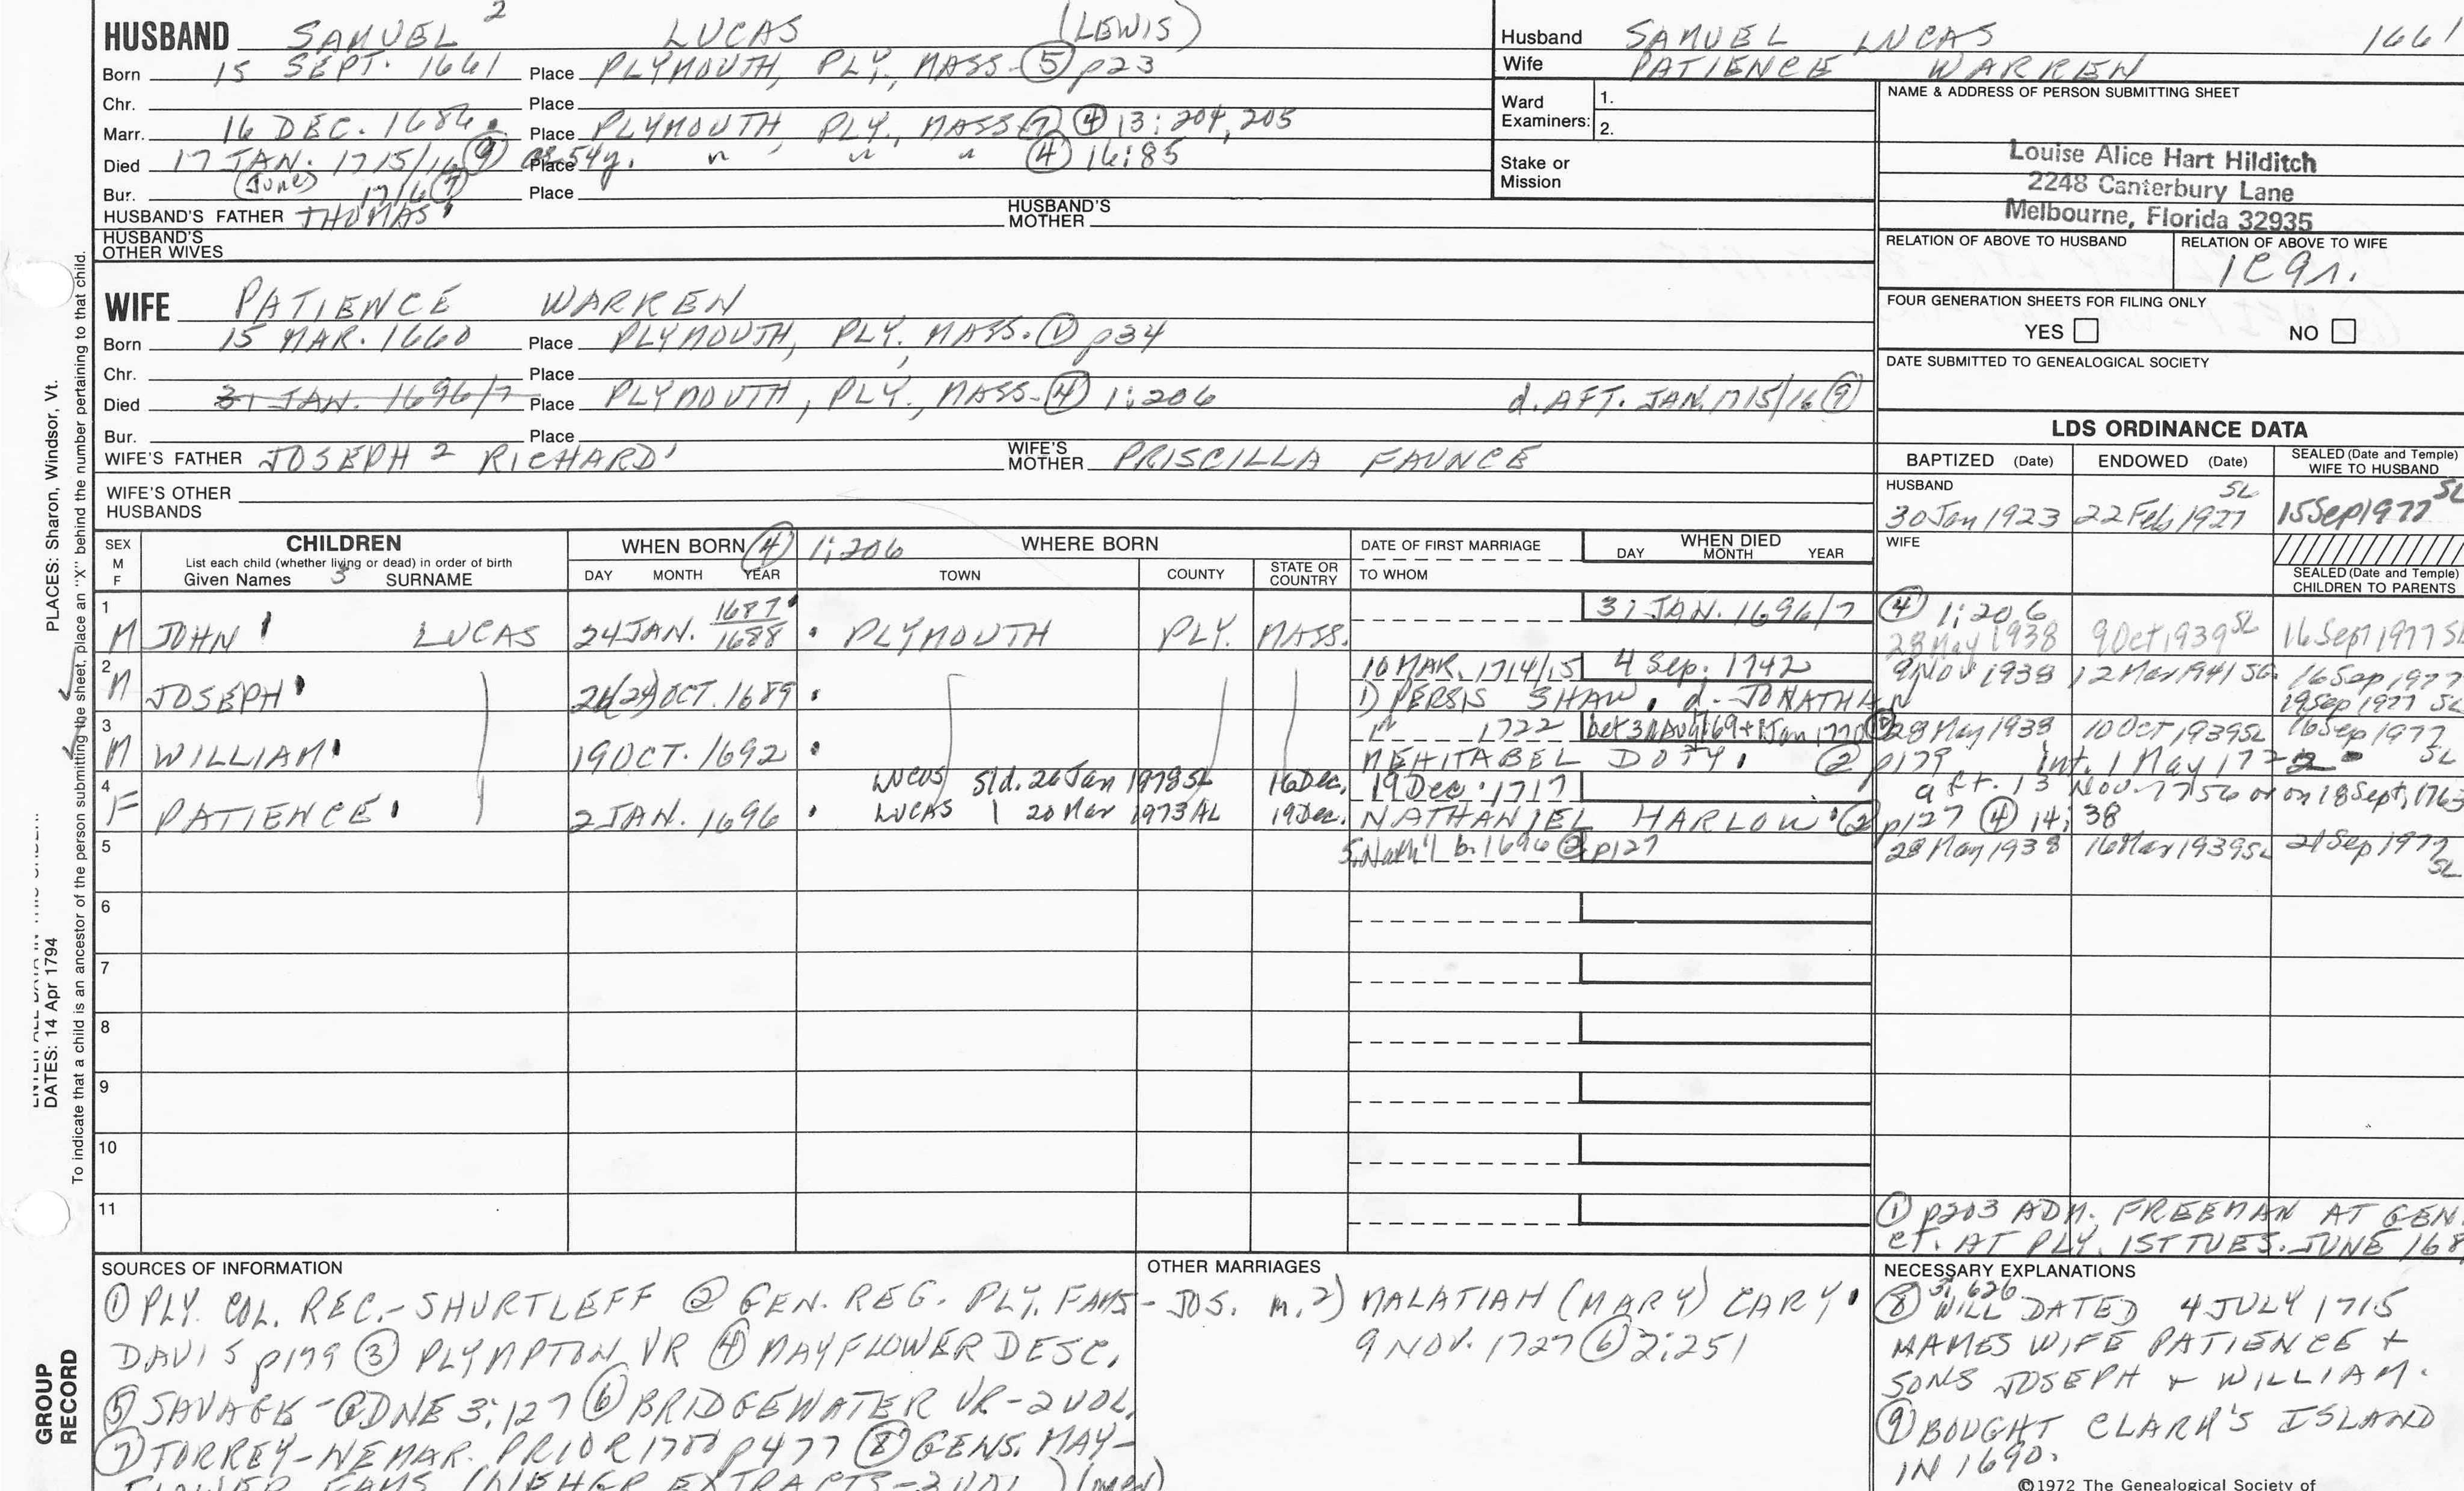 HUSBAND SAMUEL 2 LUCAS (LEWIS)
Born 15 SEPT. 1661 Place PLYMOUTH, PLY, MASS-(5) p23
Chr. Place
Marr. 16 DEC. 1686. Place PLYMOUTH, PLY., MASS (7) (4) 13:204,205
Died 17 JAN. 1715/16 (9) ae 54y. Place " " " (4) 16:85
(June) 1716 (7)
Bur. Place
HUSBAND'S FATHER THOMAS' HUSBAND'S MOTHER
HUSBAND'S OTHER WIVES
WIFE PATIENCE WARREN
Born 15 MAR. 1660 Place PLYMOUTH, PLY. MASS. (1) p34
Chr. Place
Died 31 JAN. 1696/7 Place PLYMOUTH, PLY., MASS-(4) 1:206 d. AFT. JAN. 1715/16 (9)
Bur. Place
WIFE'S FATHER JOSEPH 2 RICHARD' WIFE'S MOTHER PRISCILLA FAUNCE
WIFE'S OTHER HUSBANDS
Husband SAMUEL LUCAS 1661
Wife PATIENCE WARREN
Ward Examiners: 1.
2.
Stake or Mission
NAME & ADDRESS OF PERSON SUBMITTING SHEET
Louise Alice Hart Hilditch
2248 Canterbury Lane
Melbourne, Florida 32935
RELATION OF ABOVE TO HUSBAND RELATION OF ABOVE TO WIFE
1C9r.
FOUR GENERATION SHEETS FOR FILING ONLY
YES NO
DATE SUBMITTED TO GENEALOGICAL SOCIETY
LDS ORDINANCE DATA
BAPTIZED (Date) ENDOWED (Date) SEALED (Date and Temple) WIFE TO HUSBAND
HUSBAND
30 Jan 1923 22 Feb 1927 SL 15 Sep 1977 SL
WIFE
SEALED (Date and Temple) CHILDREN TO PARENTS
SEX M F CHILDREN List each child (whether living or dead) in order of birth Given Names 3 SURNAME
WHEN BORN (4) 1:206 DAY MONTH YEAR
WHERE BORN TOWN COUNTY STATE OR COUNTRY
DATE OF FIRST MARRIAGE TO WHOM
WHEN DIED DAY MONTH YEAR
1 M JOHN LUCAS 24 JAN. 1687/1688 PLYMOUTH PLY. MASS. 31 JAN. 1696/7 (4) 1:206
28 May 1938 9 Oct 1939 SL 16 Sep 1977 SL
2 M JOSEPH 26(24) OCT. 1689 10 MAR. 1714/15 4 Sep. 1742 9 Nov 1938 12 Mar 1941 SL 16 Sep 1977
1) PERSIS SHAW, d. JONATHAN 19 Sep 1977 SL
3 M WILLIAM 19 OCT. 1692 1722 bet 30 Aug 1769 + 1 Jan 1770 28 May 1938 10 Oct 1939 SL 16 Sep 1977 SL
MEHITABEL DOTY. (2) p179 Int. 1 May 1722
4 F PATIENCE 2 JAN. 1696 Lucas Sld. 26 Jan 1978 SL 16 Dec. 19 Dec. 1717 aft. 13 Nov. 1756 or on 18 Sept, 1763
Lucas 20 Mar 1973 AL 19 Dec. NATHANIEL HARLOW (2) p127 (4) 14:38
5 S. Nath'l b. 1696 (2) p127 28 May 1938 16 Mar 1939 SL 21 Sep 1977 SL
6
7
8
9
10
11
(1) p203 ADM. FREEMAN AT GEN.
CT. AT PLY. 1ST TUES. JUNE 168
SOURCES OF INFORMATION
(1) PLY. COL. REC.- SHURTLEFF (2) GEN. REG. PLY. FAMS-
DAVIS p179 (3) PLYMPTON VR (4) MAYFLOWER DESC.
(5) SAVAGE-GDNE 3:127 (6) BRIDGEWATER VR-2VOL.
(7) TORREY-NEMAR. PRIOR 1700 p477 (8) GENS. MAY-
FLOWER FAMS (NEHGR EXTRACTS-3VOL)
OTHER MARRIAGES
JOS. m. 2) MALATIAH (MARY) CARY
9 NOV. 1727 (6) 2:251
NECESSARY EXPLANATIONS
(8) 3:626 WILL DATED 4 JULY 1715
NAMES WIFE PATIENCE +
SONS JOSEPH + WILLIAM.
(9) BOUGHT CLARK'S ISLAND
IN 1690.
©1972 The Genealogical Society of
PLACES: Sharon, Windsor, Vt.
DATES: 14 Apr 1794
To indicate that a child is an ancestor of the person submitting the sheet, place an "X" behind the number pertaining to that child.
GROUP RECORD